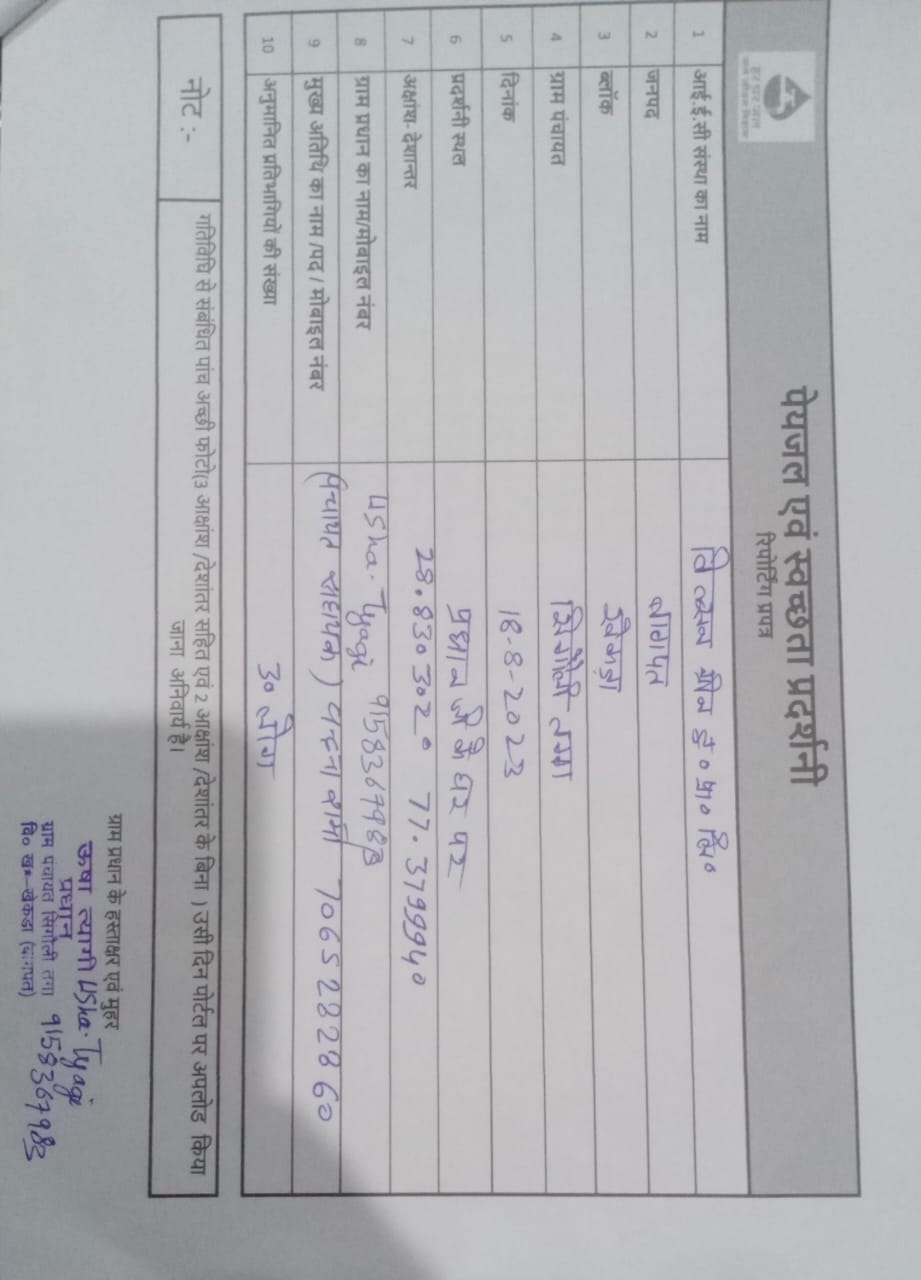 हर घर जल
पेयजल एवं स्वच्छता प्रदर्शनी
रिपोर्टिंग प्रपत्र
1 आई.ई.सी संस्था का नाम
2 जनपद बागपत
3 ब्लॉक खेकड़ा
4 ग्राम पंचायत सिंगोली तगा
5 दिनांक 18-8-2023
6 प्रदर्शनी स्थल प्रधान जी के घर पर
7 अक्षांश-देशान्तर 28.830302° 77.3799940
8 ग्राम प्रधान का नाम/मोबाइल नंबर Usha. Tyagi 9158367983
9 मुख्य अतिथि का नाम /पद / मोबाइल नंबर (पंचायत सहायक) शर्मा 7065282860
10 अनुमानित प्रतिभागियों की संख्या 30 लोग
नोट :- गतिविधि से संबंधित पांच अच्छी फोटो(3 आक्षांश /देशांतर सहित एवं 2 आक्षांश /देशांतर के बिना ) उसी दिन पोर्टल पर अपलोड किया
जाना अनिवार्य है।
ग्राम प्रधान के हस्ताक्षर एवं मुहर
ऊषा त्यागी Usha. Tyagi
प्रधान
ग्राम पंचायत सिंगोली तगा 9158367983
वि० ख०-खेकडा (बागपत)